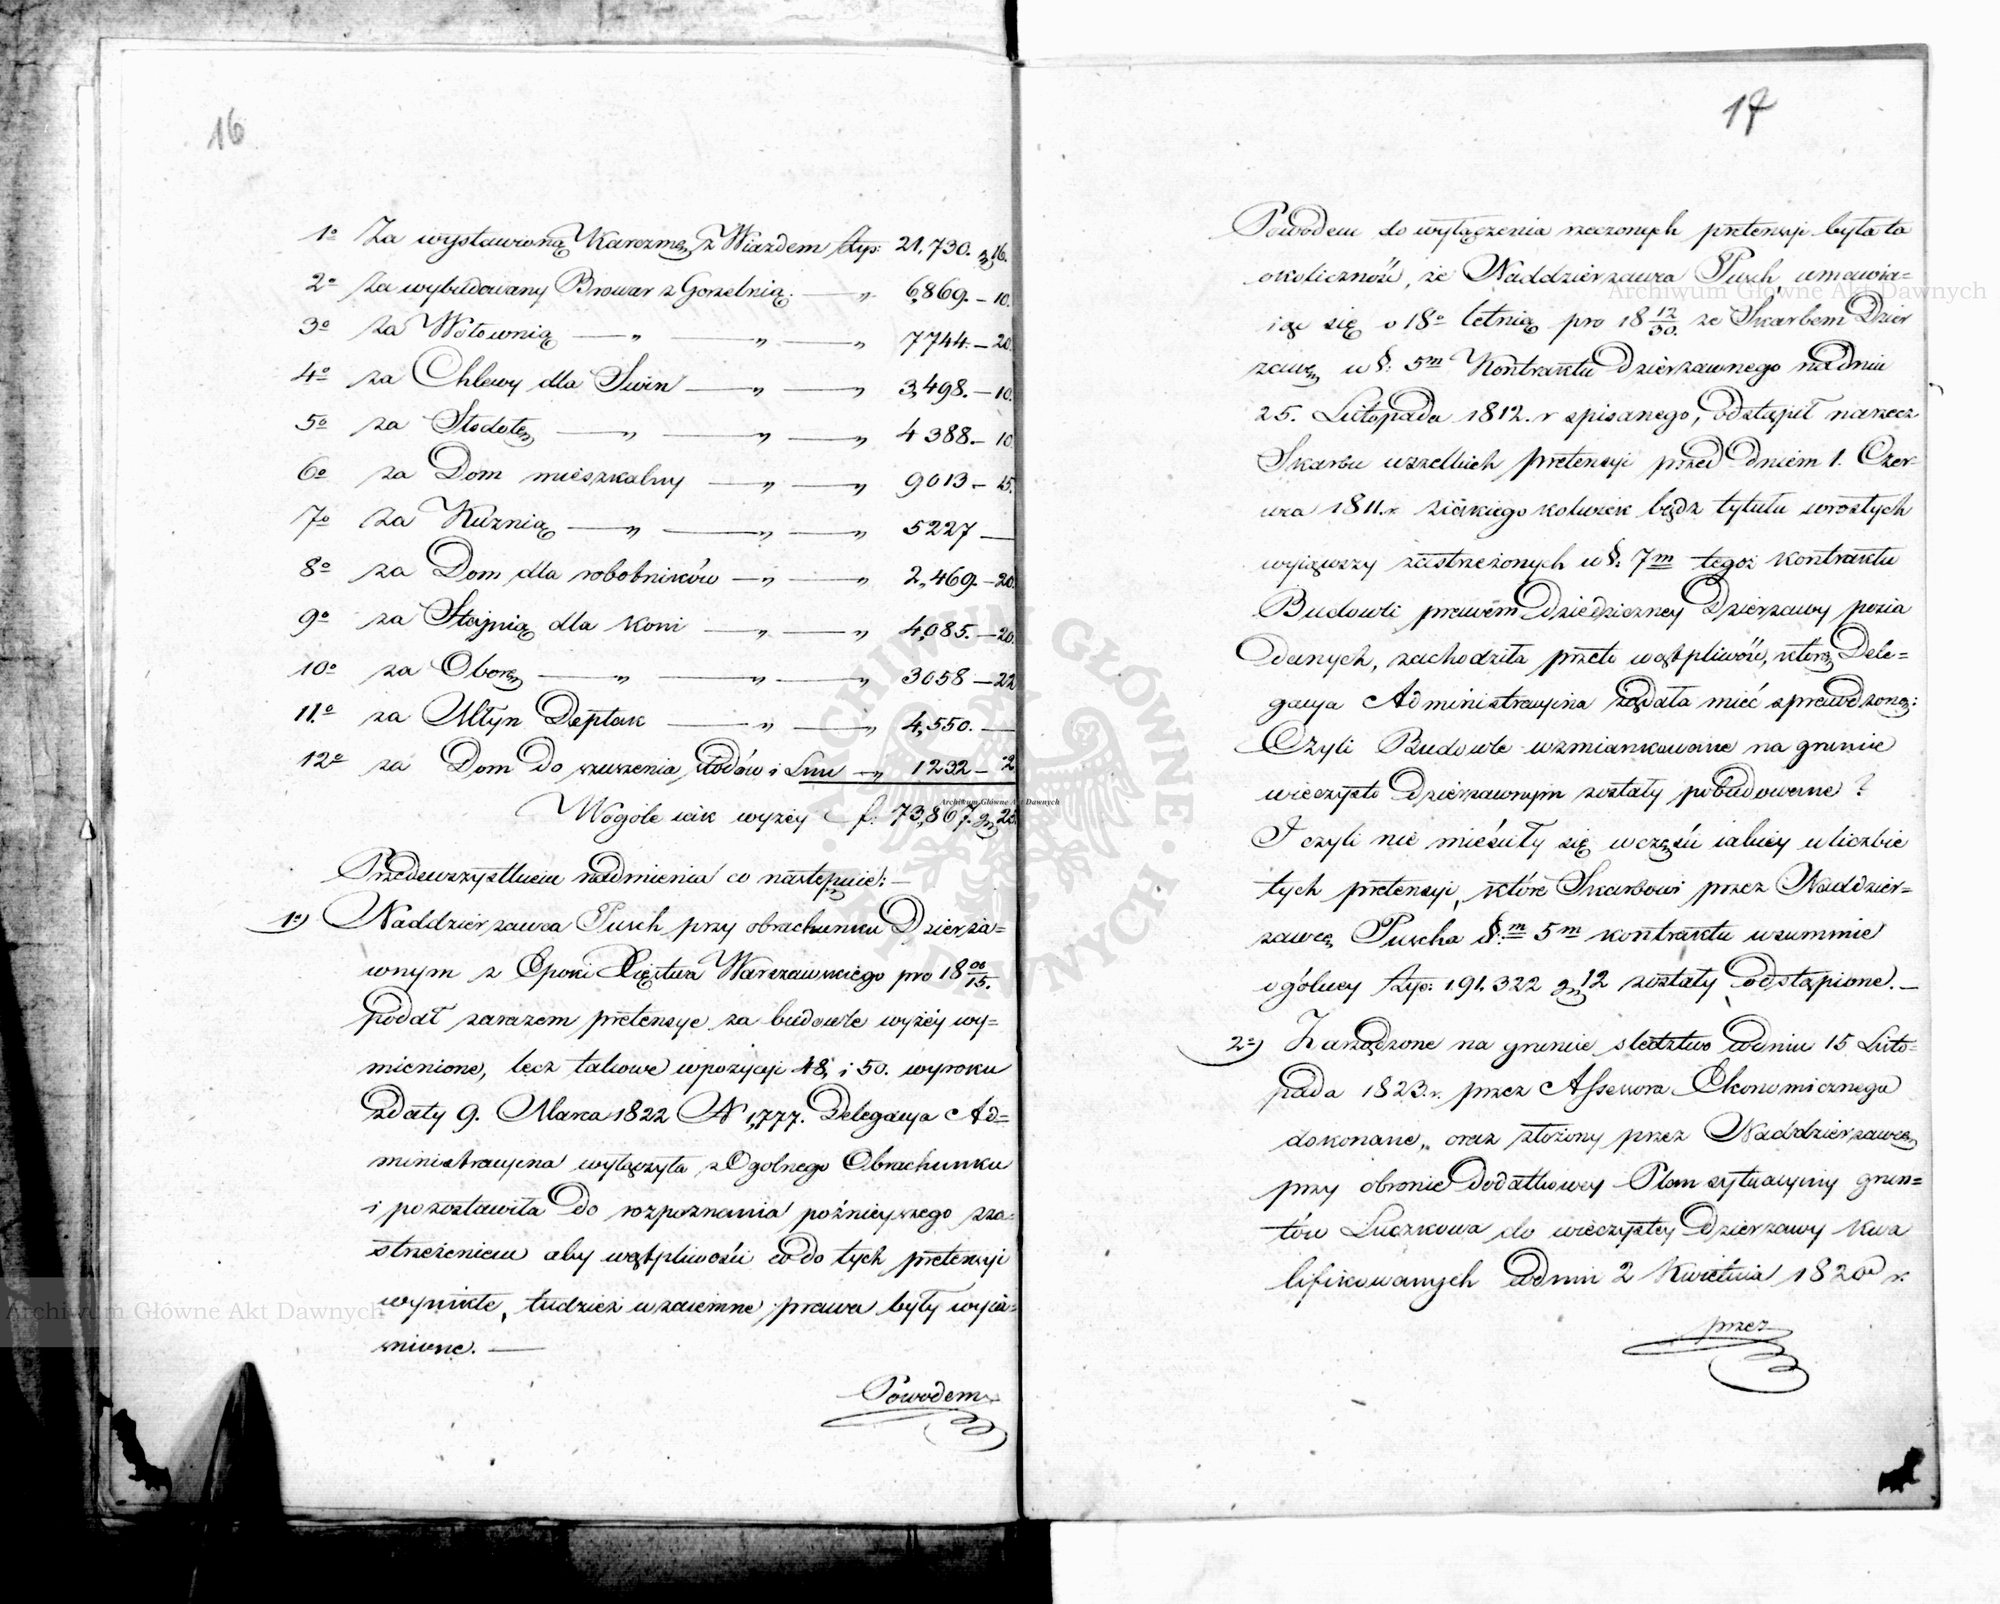 16
1o Za wystawioną Karczmę z Wiazdem złyp: 21,730. gr 16.
2o za wybudowany Browar z Gorzelnią. — „ 6,869. – 10.
3o za Wołownią — „ — „ — „ 7744. – 20.
4o za Chlewy dla Świn — „ — „ 3,498. – 10.
5o za Stodołę — „ — „ — „ 4388. – 10
6o za Dom mieszkalny — „ — „ 9013 – 15.
7o za Kuźnią — „ — „ — „ 5227 —
8o za Dom dla robotników — „ — „ 2,469. – 20.
9o za Stajnią dla koni — „ — „ 4,085. – 20.
10o za Oborę — „ — „ — „ 3058 – 22
11.o za Młyn Deptak — „ — „ 4,550. —
12o za Dom do suszenia słodów i Lnu — „ 1232 – 2
Wogóle iak wyżey f: 73,867. gr 25.
Przedewszystkiem nadmienia co następuie: —
1o) Naddzierzawca Pusch przy obrachunku Dzierża=
wnym z Epoki Xięstwa Warszawskiego pro 18 06/15.
podał zarazem pretensye za budowle wyżey wy=
mienione, lecz takowe w pozycyi 48, i 50. wyroku
z daty 9. Marca 1822 N 1,777. Delegacya Ad=
ministracyina wyłączyła z Ogolnego Obrachunku
i pozostawiła do rozpoznania poźnieyszego z za=
strzeżeniem aby wątpliwości co do tych pretensyi
wynikłe, tudzież wzaiemne prawa były wyia=
śnione. —
Powodem
17
Powodem do wyłączenia rzeczonych pretensyi była ta
okoliczność, że Naddzierzawca Pusch, umawia=
iąc się o 18o letnią pro 18 12/30. ze Skarbem Dzier
zawę w §. 5m Kontraktu Dzierzawnego na dniu
25. Listopada 1812. r spisanego, odstąpił na rzecz
Skarbu wszelkich pretensyi przed dniem 1. Czer=
wca 1811. r z iakiego kolwiek bądź tytułu wrosłych
wyiąwszy zastrzeżonych w §. 7m tegoż kontraktu
Budowli prawem Dziedziczney Dzierzawy posia
danych, zachodziła przeto wątpliwość, którą Dele=
gacya Administracyina żądała mieć sprawdzoną:
Czyli Budowle wzmiankowane na gruncie
wieczysto Dzierzawnym zostały pobudowane?
I czyli nie mieściły się w części iakiey w liczbie
tych pretensyi, które Skarbowi przez Naddzier=
zawcę Puscha §.m 5m kontraktu w summie
ogólney złyp: 191,322 gr 12 zostały odstąpione. —
2o) Zarządzone na gruncie sledztwo w dniu 15 Listo=
pada 1823. r. przez Assessora Ekonomicznego
dokonane, oraz złożony przez Naddzierzawcę
przy obronie dodatkowey Plan sytuacyiny grun=
tów Luszkowa do wieczystey Dzierzawy kwa
lifikowanych w dniu 2 Kwietnia 1820 r.
przez
Archiwum Główne Akt Dawnych
Archiwum Główne Akt Dawnych
Archiwum Główne Akt Dawnych
ARCHIWUM GŁÓWNE AKT DAWNYCH